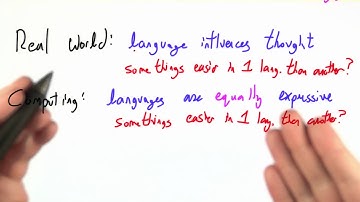 Real World: language influences thought
some things easier in 1 lang. than another?
Computing: languages are equally expressive
some things easier in 1 lang. than another?